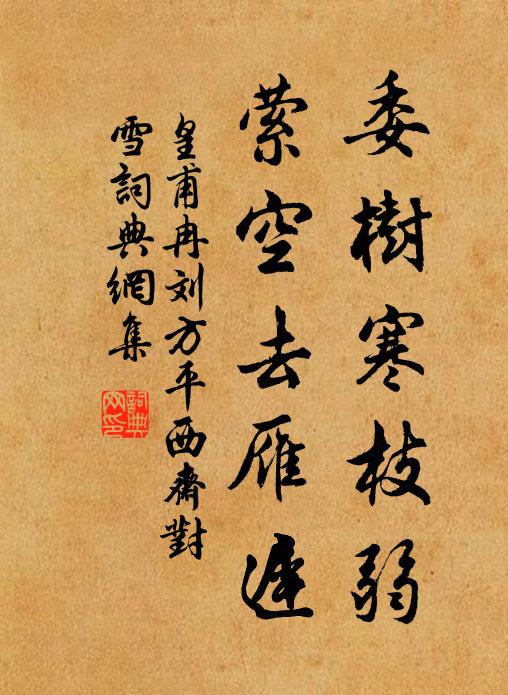 委樹寒枝弱
萦空去雁遲
皇甫冉刘方平西齋對
雪詞典網集
詞典
网印